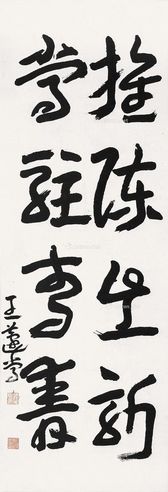 推陈出新
常駐青春
王蘧常